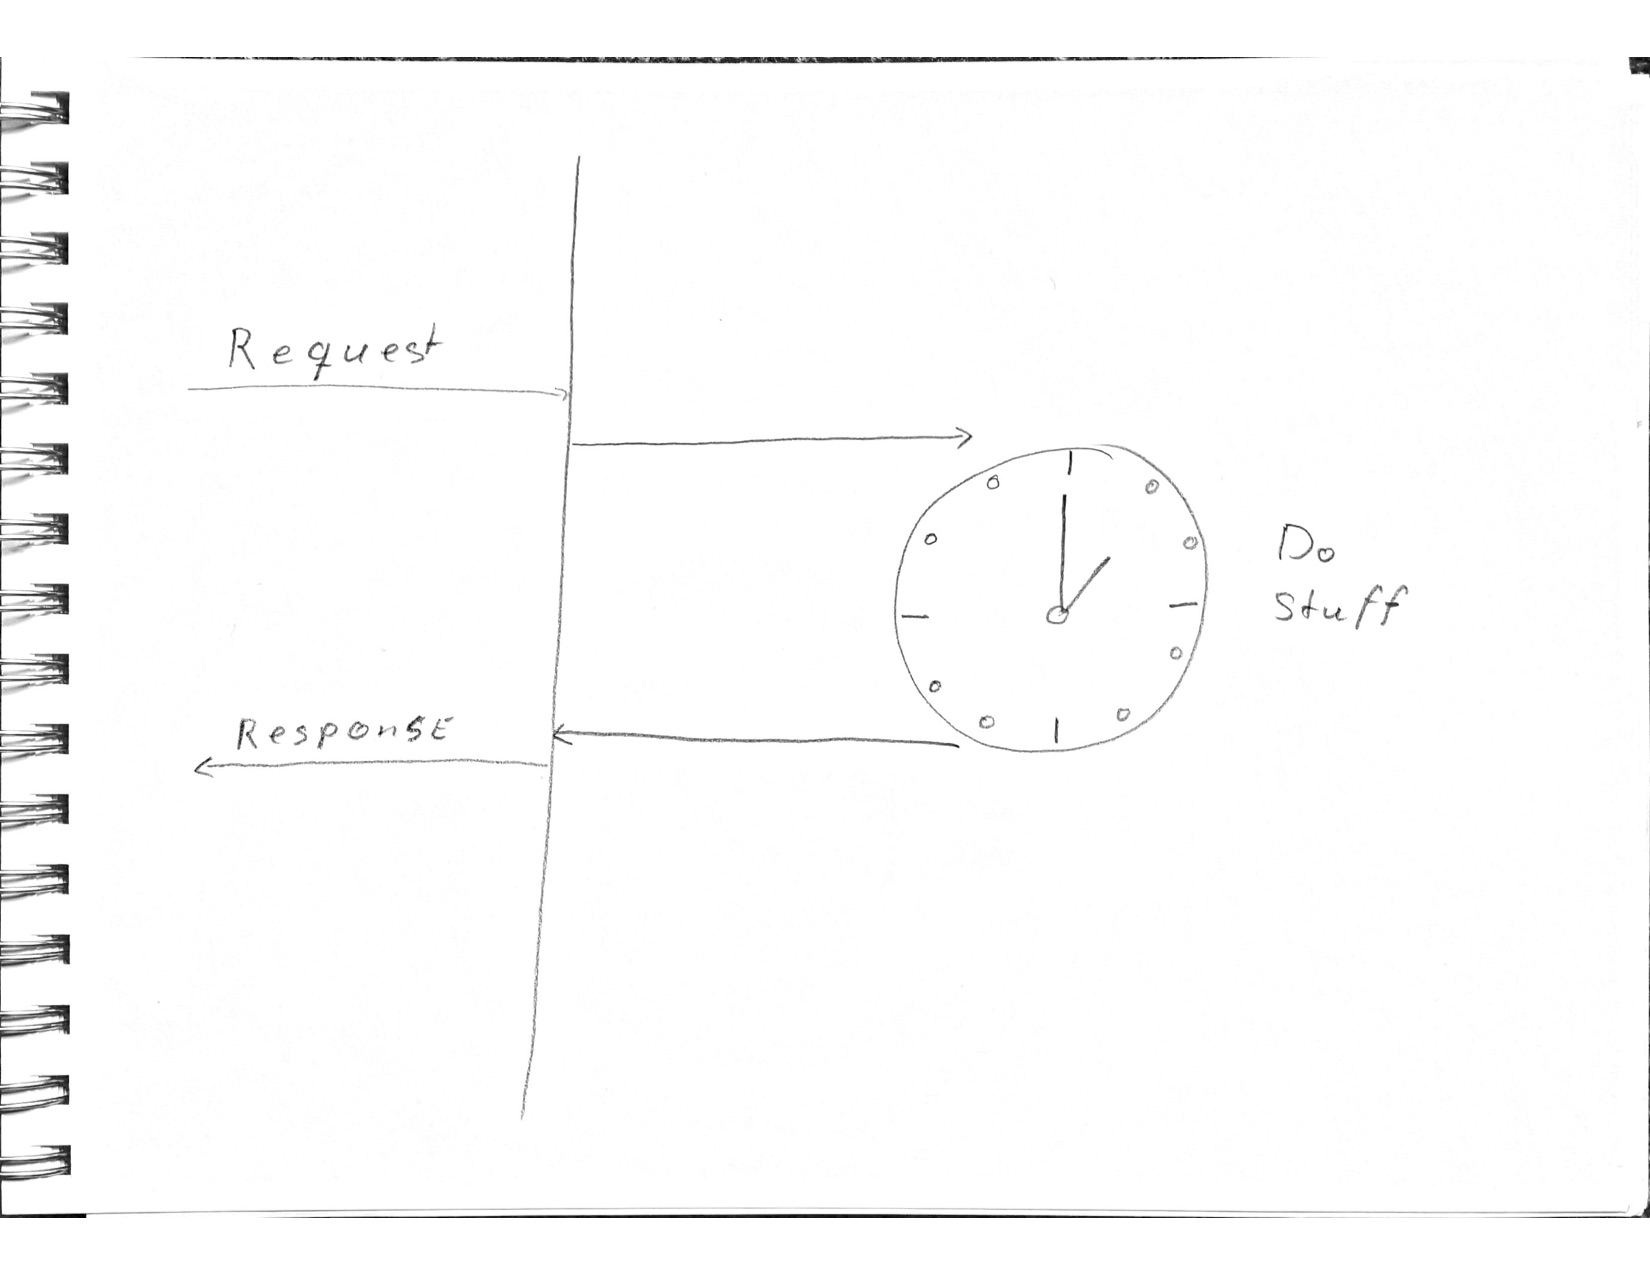 Request
Do
Stuff
Response